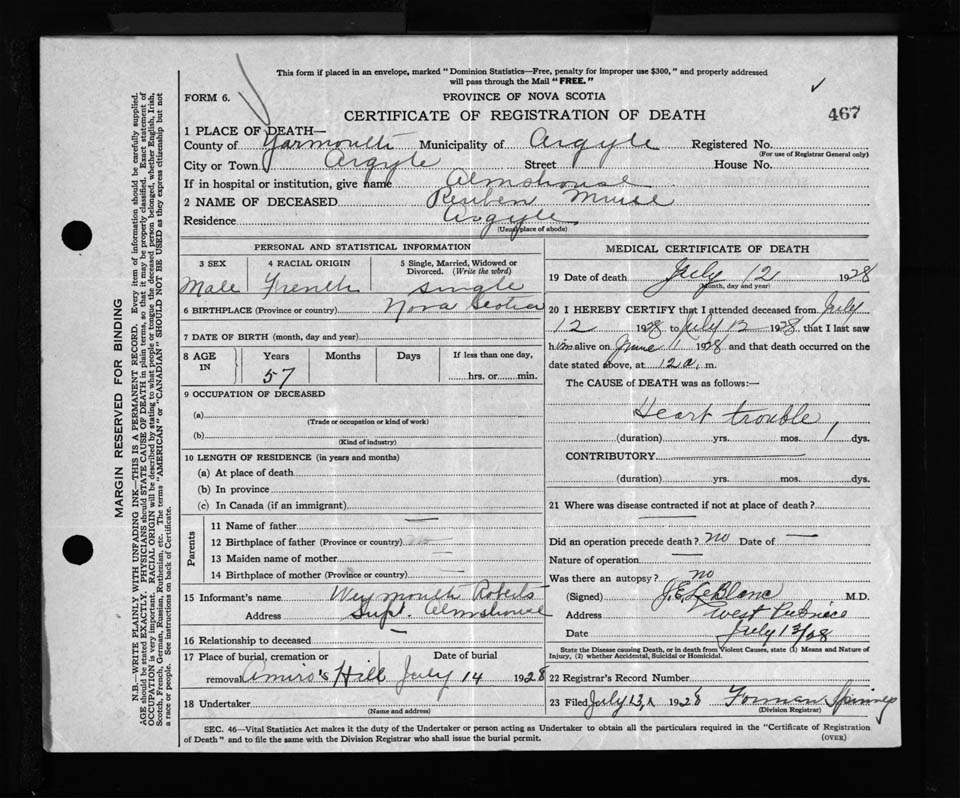 This form if placed in an envelope, marked "Dominion Statistics—Free, penalty for improper use $300," and properly addressed
will pass through the Mail "FREE."
FORM 6.
PROVINCE OF NOVA SCOTIA
467
CERTIFICATE OF REGISTRATION OF DEATH
1 PLACE OF DEATH—
County of Yarmouth Municipality of Argyle Registered No.
(For use of Registrar General only)
City or Town Argyle Street House No.
If in hospital or institution, give name Almshouse
2 NAME OF DECEASED Reuben Muise
Residence Argyle
(Usual place of abode)
PERSONAL AND STATISTICAL INFORMATION
3 SEX 4 RACIAL ORIGIN 5 Single, Married, Widowed or
Divorced. (Write the word)
Male French Single
6 BIRTHPLACE (Province or country) Nova Scotia
7 DATE OF BIRTH (month, day and year)
8 AGE IN Years Months Days If less than one day,
57 hrs. or min.
9 OCCUPATION OF DECEASED
(a)
(Trade or occupation or kind of work)
(b)
(Kind of industry)
10 LENGTH OF RESIDENCE (in years and months)
(a) At place of death
(b) In province
(c) In Canada (if an immigrant)
Parents
11 Name of father —
12 Birthplace of father (Province or country)
13 Maiden name of mother —
14 Birthplace of mother (Province or country) —
15 Informant's name Weymouth Roberts
Address Supt. Almshouse
16 Relationship to deceased —
17 Place of burial, cremation or Date of burial
removal Amiro's Hill July 14 1928
18 Undertaker
(Name and address)
MEDICAL CERTIFICATE OF DEATH
19 Date of death July 12 1928
(Month, day and year)
20 I HEREBY CERTIFY that I attended deceased from July
12 1928 to July 12 1928, that I last saw
him alive on June 11 1928 and that death occurred on the
date stated above, at 12 a. m.
The CAUSE of DEATH was as follows:—
Heart trouble
(duration) yrs. mos. 1 dys.
CONTRIBUTORY
(duration) yrs. mos. dys.
21 Where was disease contracted if not at place of death?
Did an operation precede death? no Date of —
Nature of operation —
Was there an autopsy? no
(Signed) J.E. LeBlanc, M.D.
Address West Pubnico
Date July 13/28
State the Disease causing Death, or in death from Violent Causes, state (1) Means and Nature of
Injury, (2) whether Accidental, Suicidal or Homicidal.
22 Registrar's Record Number
23 Filed July 13, 1928 Forman Spinney
(Division Registrar)
SEC. 46—Vital Statistics Act makes it the duty of the Undertaker or person acting as Undertaker to obtain all the particulars required in the "Certificate of Registration
of Death" and to file the same with the Division Registrar who shall issue the burial permit.
(OVER)
MARGIN RESERVED FOR BINDING
N.B.—WRITE PLAINLY WITH UNFADING INK—THIS IS A PERMANENT RECORD. Every item of information should be carefully supplied.
AGE should be stated EXACTLY. PHYSICIANS should STATE CAUSE OF DEATH in plain terms, so that it may be properly classified. Exact statement of
OCCUPATION is very important. RACIAL ORIGIN will be described by stating to what people or tongue the deceased person belonged, whether English, Irish,
Scotch, French, German, Russian, Ruthenian, etc. The terms "AMERICAN" or "CANADIAN" SHOULD NOT BE USED as they express citizenship but not
a race or people. See instructions on back of Certificate.